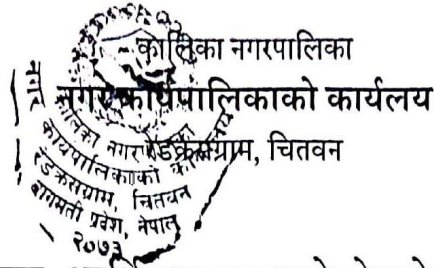 कालिका नगरपालिका
नगर कार्यपालिकाको कार्यलय
रेडक्रसग्राम, चितवन
कालिका नगरपालिका
नगर कार्यपालिकाको कार्यालय
रेडक्रसग्राम, चितवन
बागमती प्रदेश, नेपाल
२०७३